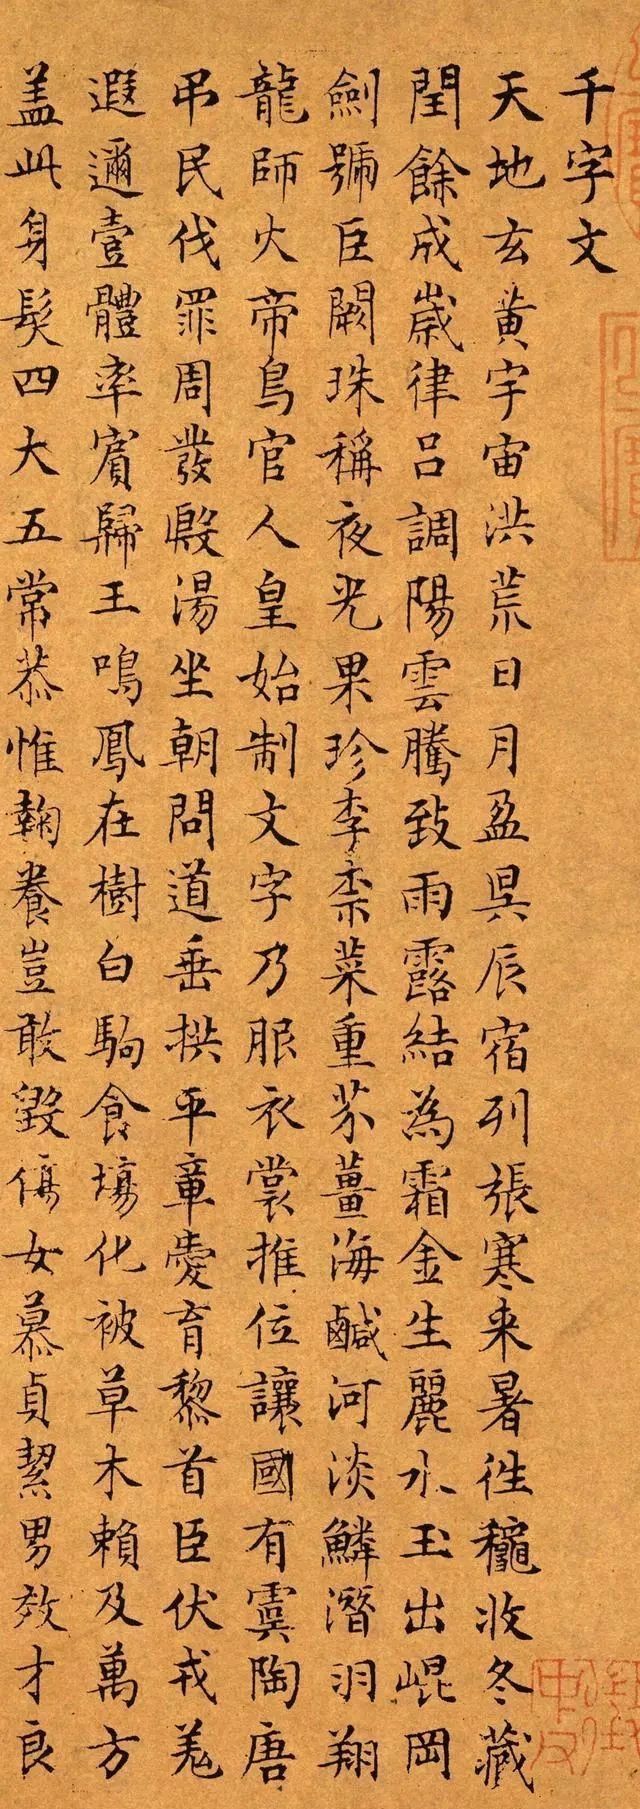 千字文
天地玄黄宇宙洪荒日月盈昃辰宿列張寒来暑往穐收冬藏
閏餘成歲律吕調陽雲騰致雨露結為霜金生麗水玉出崐岡
劍號巨闕珠稱夜光果珍李柰菜重芥薑海鹹河淡鱗潛羽翔
龍師火帝鳥官人皇始制文字乃服衣裳推位讓國有虞陶唐
弔民伐罪周發殷湯坐朝問道垂拱平章愛育黎首臣伏戎羌
遐邇壹體率賓歸王鳴鳳在樹白駒食場化被草木賴及萬方
盖此身髮四大五常恭惟鞠養豈敢毀傷女慕貞絜男效才良